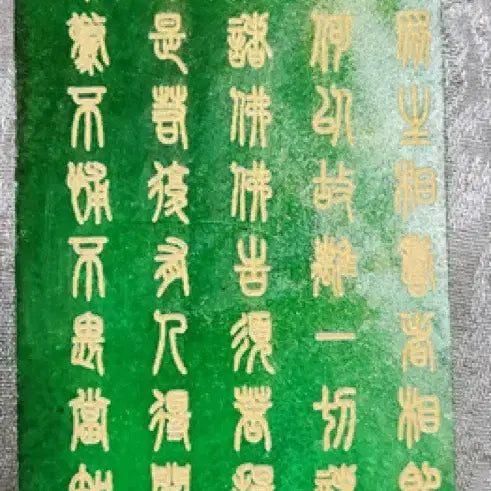 眾生相壽者相即
何以故離一切諸
諸佛佛告須菩提
是若復有人得聞
驚不怖不畏當知